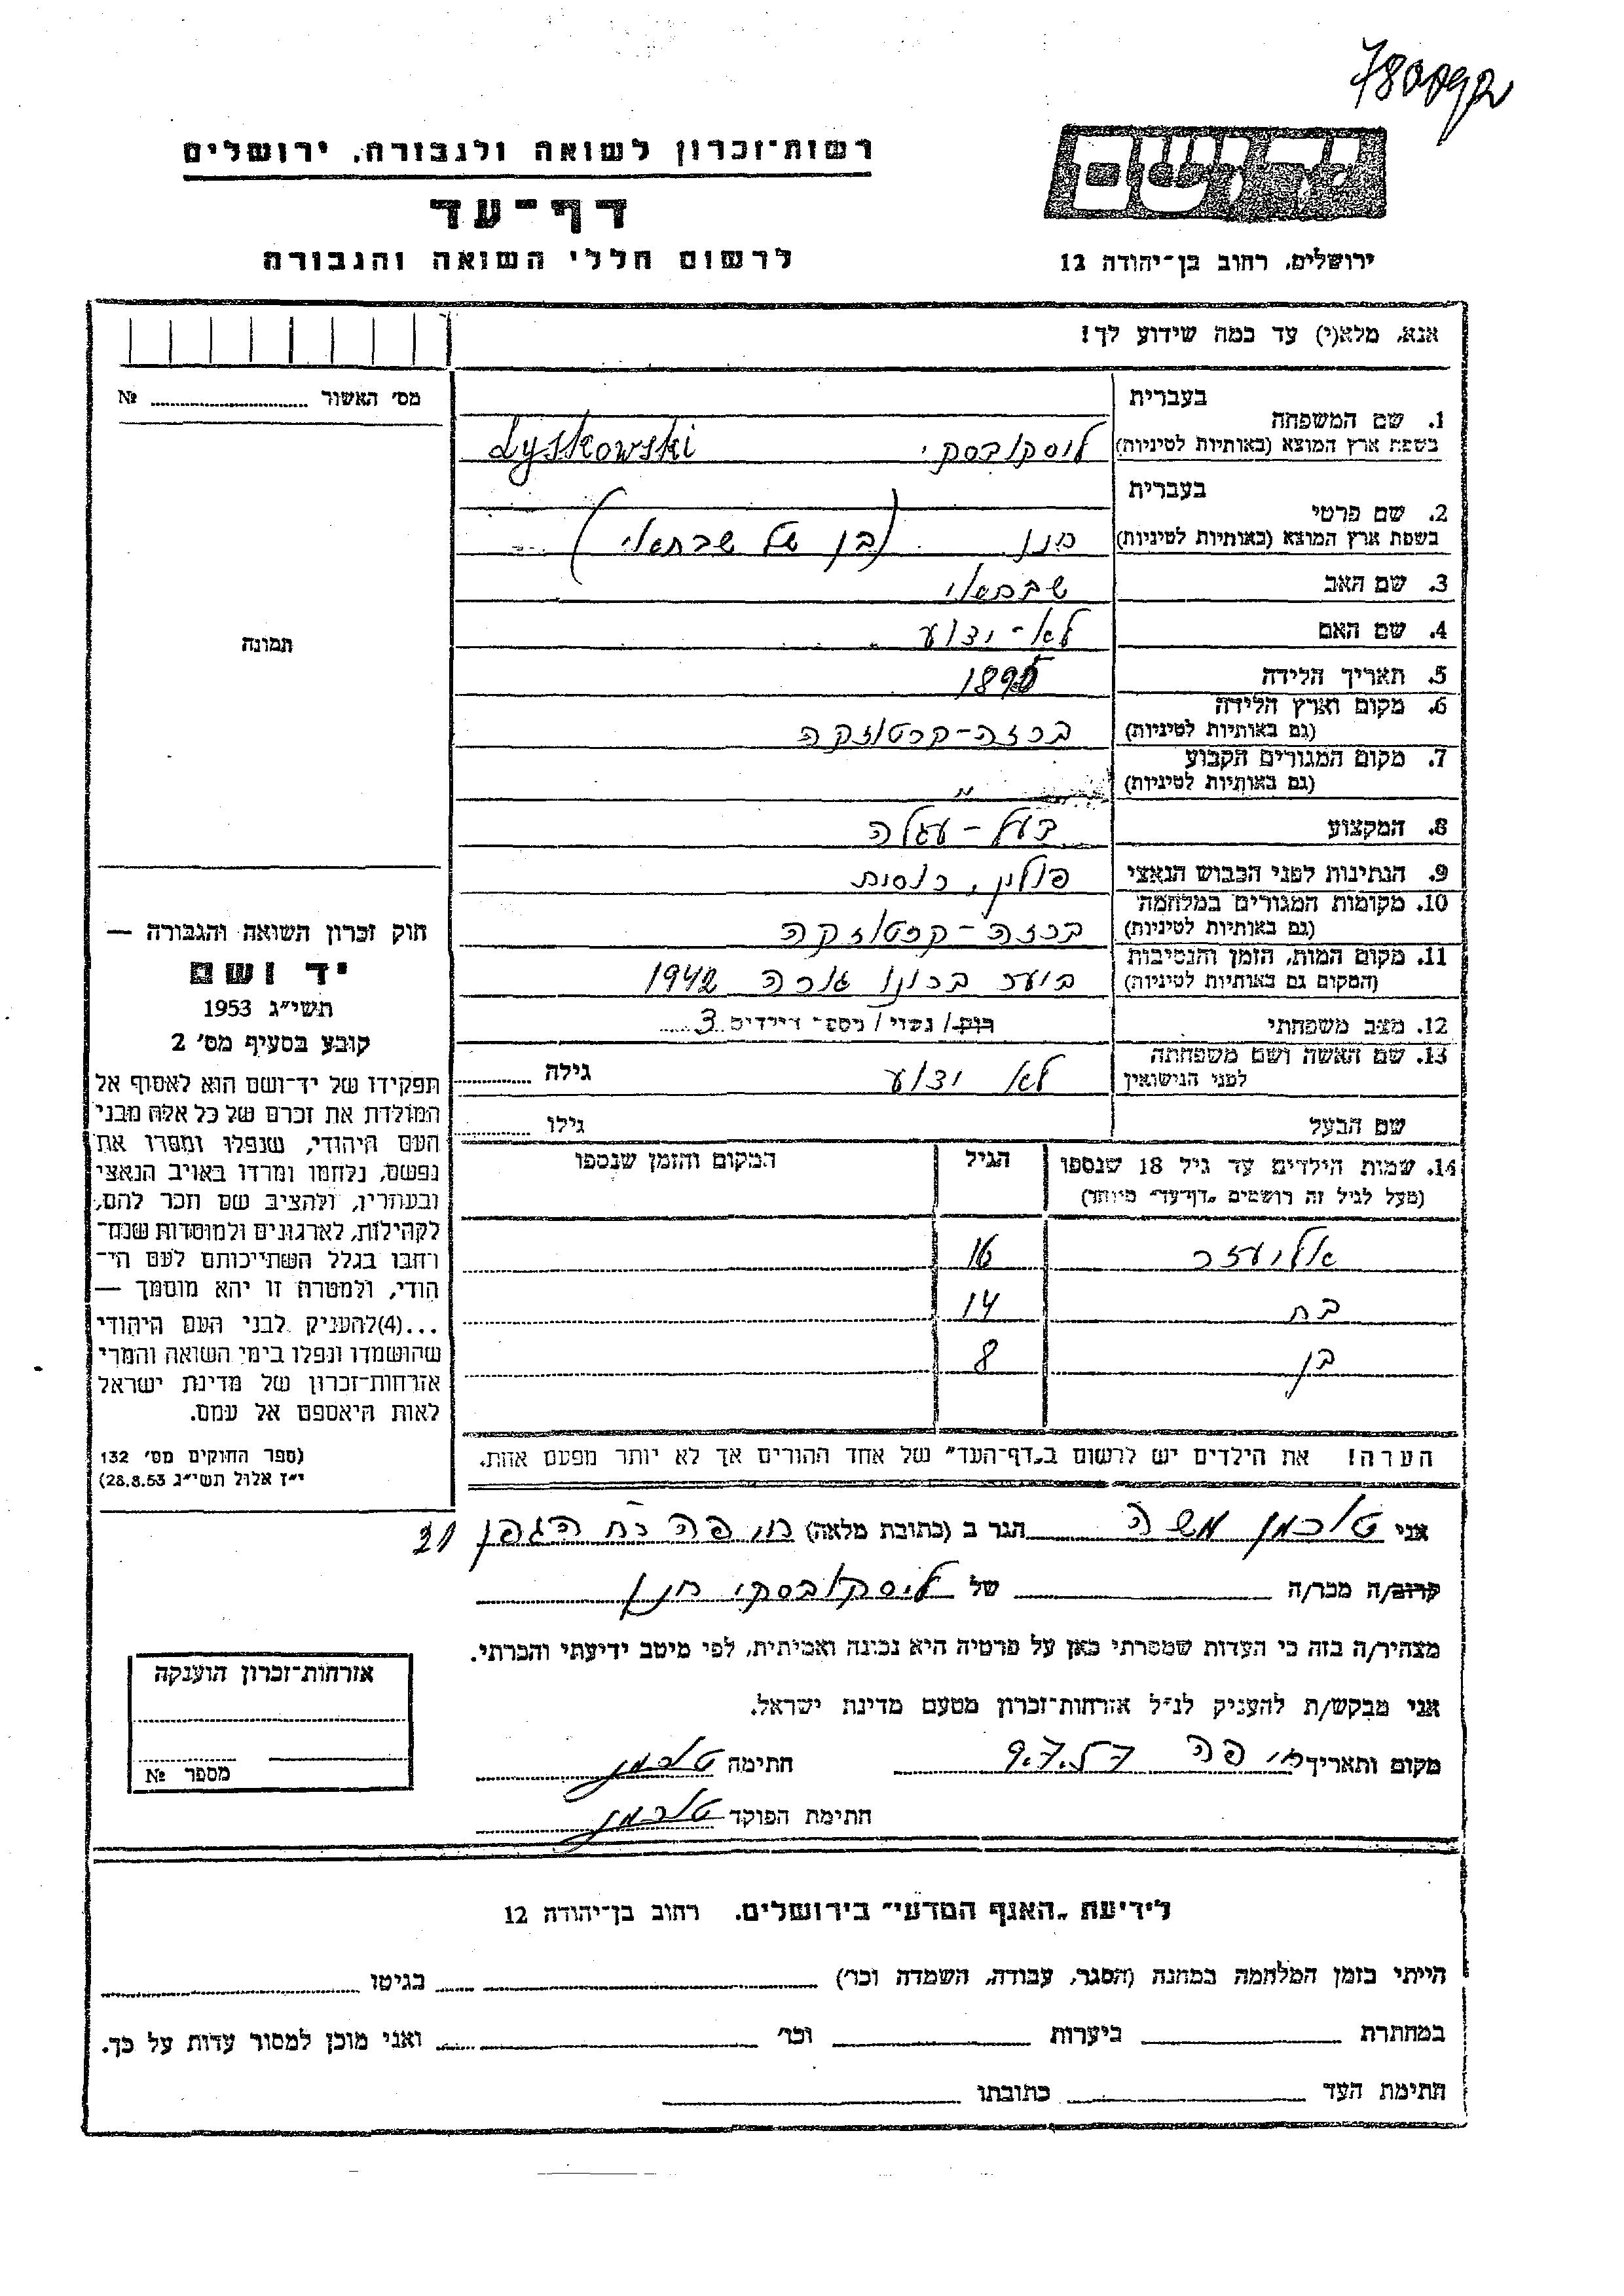 רשות־זכרון לשואה ולגבורה, ירושלים
דף־עד
לרשום חללי השואה והגבורה
ירושלים, רחוב בן־יהודה 12
אנא, מלא(י) עד כמה שידוע לך!
מס׳ האשור № 
בעברית
1. שם המשפחה
בשפת ארץ המוצא (באותיות לטיניות) ליסקובסקי Lyskowski
בעברית
2. שם פרטי
בשפת ארץ המוצא (באותיות לטיניות) חנן (בן של שבתאי)
3. שם האב שבתאי
4. שם האם לא-ידוע
5. תאריך הלידה
6. מקום וארץ הלידה
(גם באותיות לטיניות) ברזה-קרטוזקה
7. מקום המגורים הקבוע
(גם באותיות לטיניות) "
8. המקצוע בעל-עגלה
9. הנתינות לפני הכבוש הנאצי פולין, רוסית
10. מקומות המגורים במלחמה
(גם באותיות לטיניות) ברזה-קרטוזקה
11. מקום המות, הזמן והנסיבות
(המקום גם באותיות לטיניות) ברונו גורה 1942
12. מצב משפחתי רוק/ נשוי/ מספר הילדים 3
13. שם האשה ושם משפחתה
לפני הנישואין לא ידוע גילה
שם הבעל גילו
14. שמות הילדים עד גיל 18 שנספו הגיל המקום והזמן שנספו
(מעל לגיל זה רושמים „דף־עד״ מיוחד)
אליעזר 16
בת 14
בן 8
הערה! את הילדים יש לרשום ב„דף־העד״ של אחד ההורים אך לא יותר מפעם אחת.
תמונה
חוק זכרון השואה והגבורה —
יד ושם
תשי״ג 1953
קובע בסעיף מס׳ 2
תפקידו של יד־ושם הוא לאסוף אל
המולדת את זכרם של כל אלה מבני
העם היהודי, שנפלו ומסרו את
נפשם, נלחמו ומרדו באויב הנאצי
ובעוזריו, ולהציב שם וזכר להם,
לקהילות, לארגונים ולמוסדות שנח־
רבו בגלל השתייכותם לעם הי־
הודי, ולמטרה זו יהא מוסמך —
...(4)להעניק לבני העם היהודי
שהושמדו ונפלו בימי השואה והמרי
אזרחות־זכרון של מדינת ישראל
לאות היאספם אל עמם.
(ספר החוקים מס׳ 132
י״ז אלול תשי״ג 28.8.53)
אני טוכמן משה הגר ב (כתובת מלאה) חיפה רח הגפן 21
קרוב/ה מכר/ה של ליסקובסקי חנן
מצהיר/ה בזה כי העדות שמסרתי כאן על פרטיה היא נכונה ואמיתית, לפי מיטב ידיעתי והכרתי.
אני מבקש/ת להעניק לנ״ל אזרחות־זכרון מטעם מדינת ישראל.
מקום ותאריך חיפה 9.7.57 חתימה טוכמן
חתימת הפוקד טוכמן
אזרחות־זכרון הוענקה
מספר №
לידיעת „האגף המדעי״ בירושלים, רחוב בן־יהודה 12
הייתי בזמן המלחמה במחנה (הסגר, עבודה, השמדה וכו׳) בגיטו
במחתרת ביערות וכו׳ ואני מוכן למסור עדות על כך.
חתימת העד כתובתו